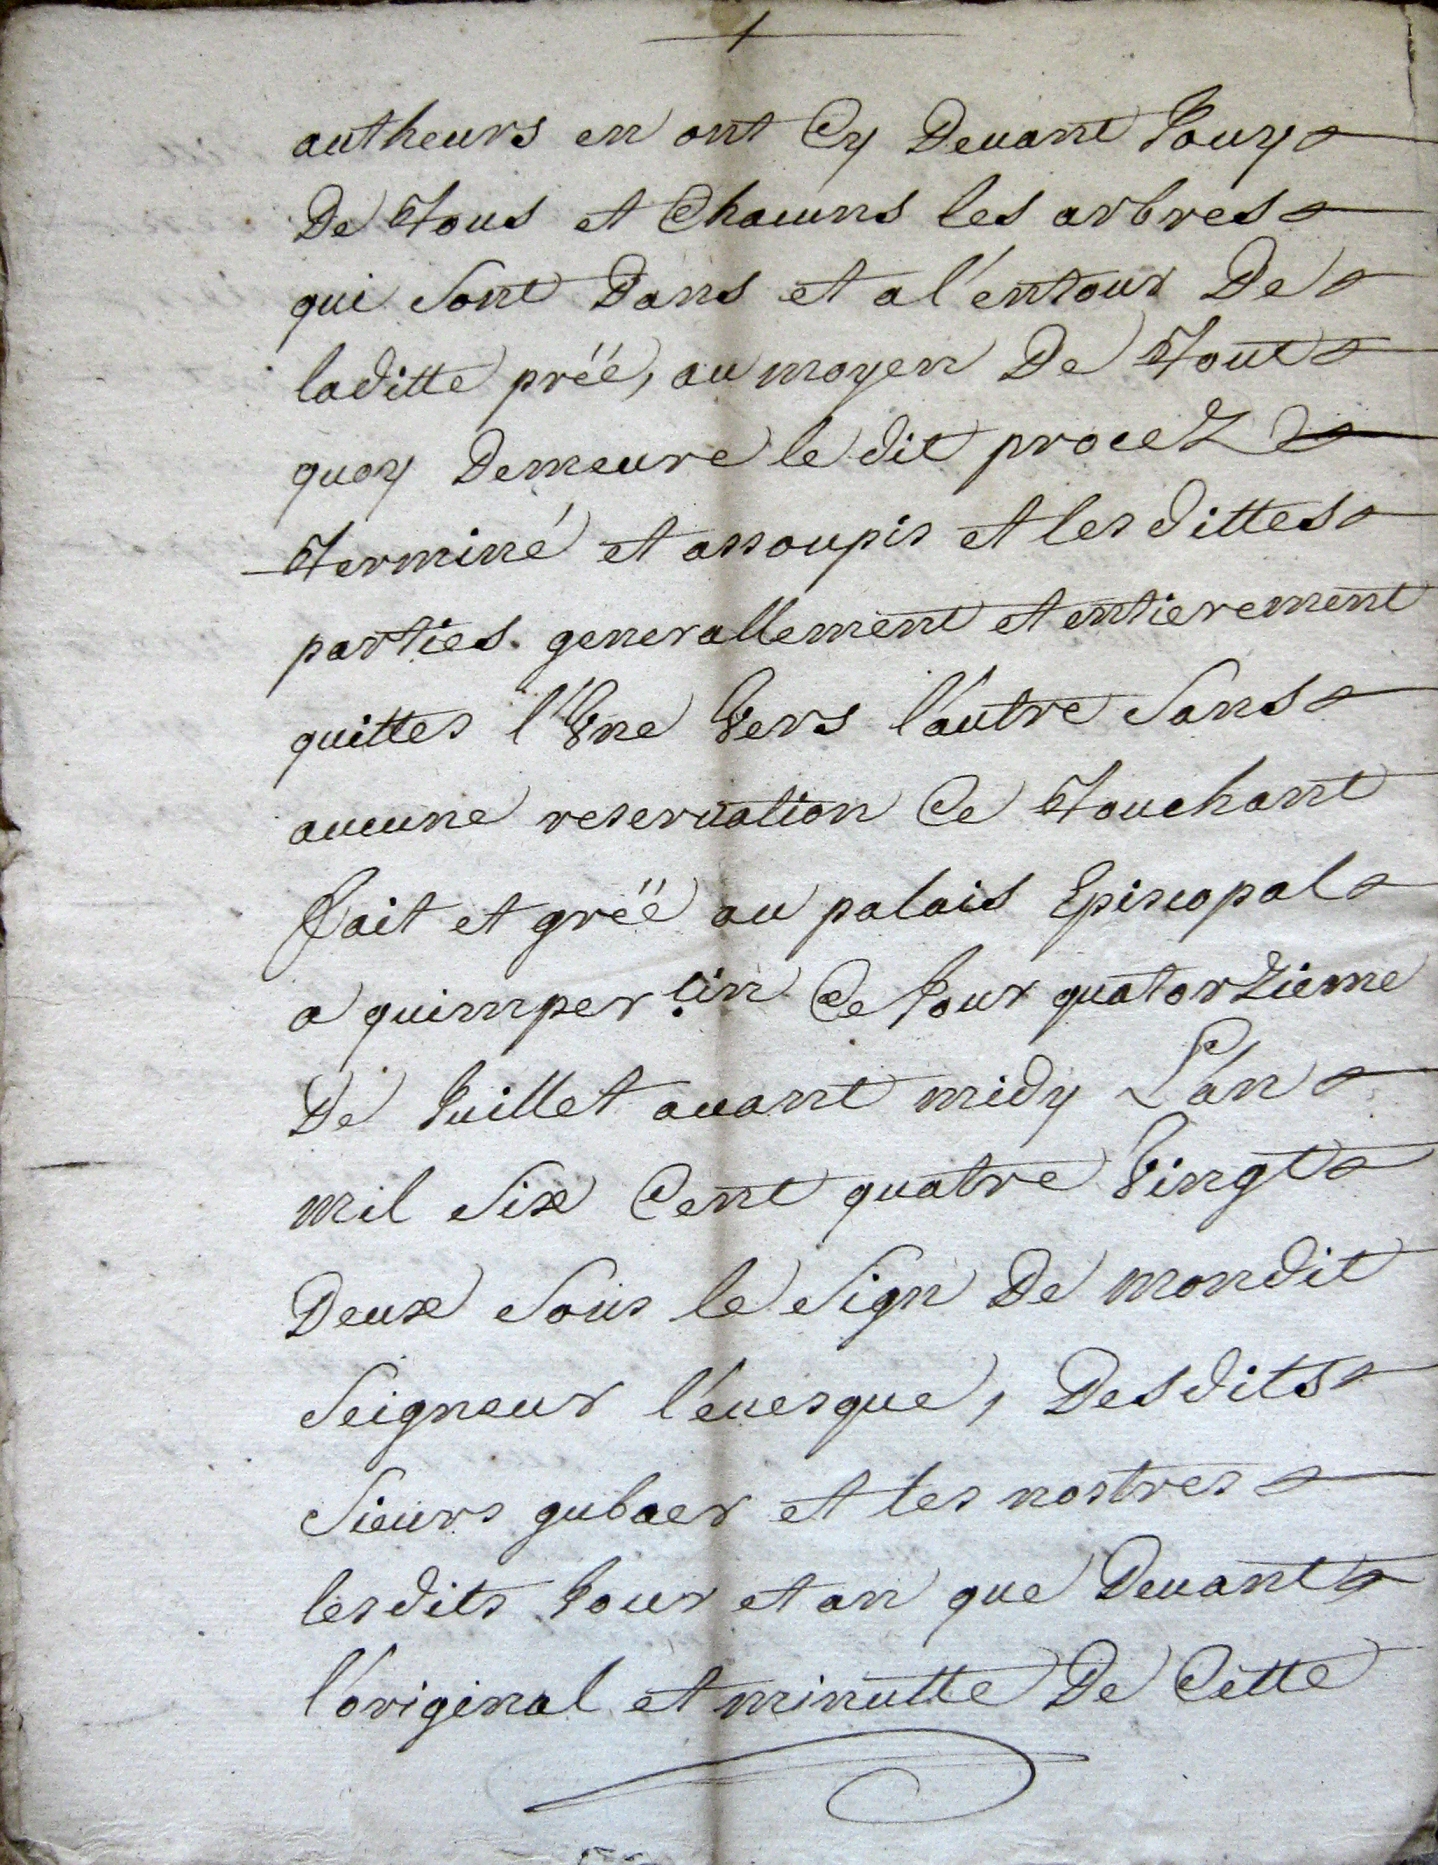 autheurs en ont Cy Devant Jouy
De Tous et Chacuns les arbres
qui sont Dans et a l'entour De
laditte préé, au moyen De Tout
quoy Demeure le dit procez
Terminé et assoupis et les dittes
parties. generallement et entierement
quittes l'Vne Vers l'autre Sans
aucune reseruation Ce Touchant
fait et gréé au palais Episcopal
a quimper Ce Jour quatorzieme
De Juillet auant midy L'an
mil Six Cent quatre Vingt
Deux Sous le Sign De mondit
Seigneur l'éuesque, Desdits
Sieurs gubaer et les nostres
lesdits Jour et an que Deuant
l'original et minutte De Cette